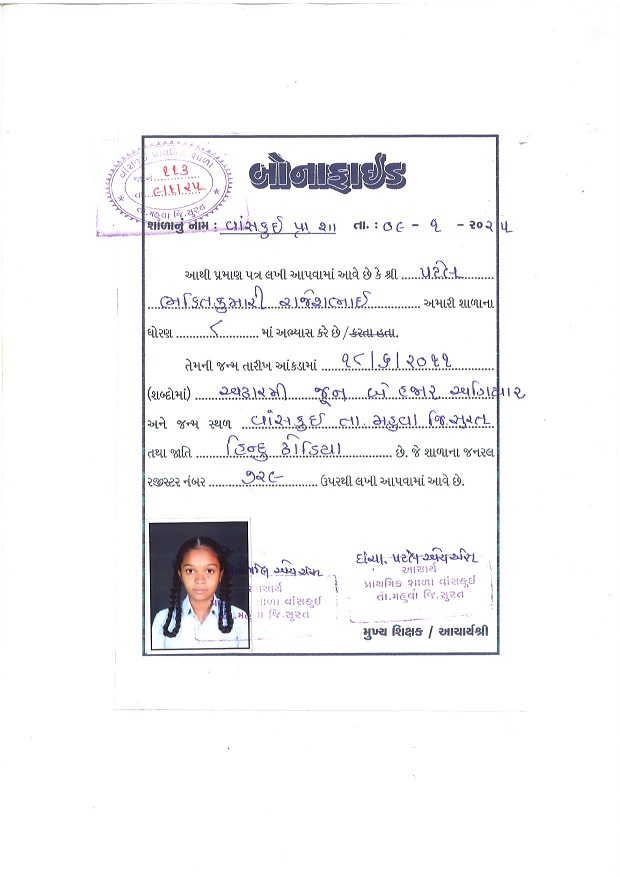 વાંસકુઈ પ્રાથમિક શાળા
જા.નં. ૧૧૩
તા. ૯/૧/૨૫
તા.મહુવા જિ.સુરત
બોનાફાઈડ
શાળાનું નામ : વાંસકુઈ પ્રા શા તા. : ૦૯ - ૧ - ૨૦૨૫
આથી પ્રમાણ પત્ર લખી આપવામાં આવે છે કે શ્રી પટેલ
ભક્તિકુમારી રાજેશભાઈ અમારી શાળાના
ધોરણ ૮ માં અભ્યાસ કરે છે / કરતા હતા.
તેમની જન્મ તારીખ આંકડામાં ૧૮/૬/૨૦૧૧
(શબ્દોમાં) અઢારમી જૂન બે હજાર અગિયાર
અને જન્મ સ્થળ વાંસકુઈ તા. મહુવા જિ.સુરત
તથા જાતિ હિન્દુ ઢોડિયા છે. જે શાળાના જનરલ
રજીસ્ટર નંબર ૭૨૯ ઉપરથી લખી આપવામાં આવે છે.
આચાર્ય
શાળા વાંસકુઈ
જિ.સુરત
આચાર્ય
પ્રાથમિક શાળા વાંસકુઈ
તા.મહુવા જિ.સુરત
મુખ્ય શિક્ષક / આચાર્યશ્રી